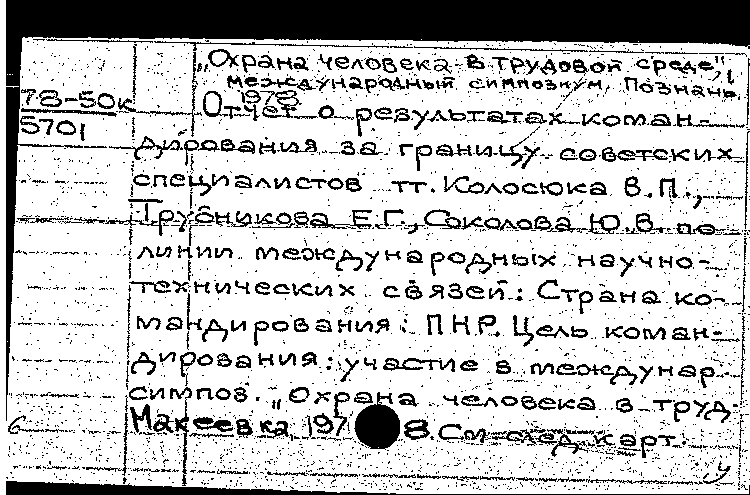 „Охрана человека в трудовой среде",
международный симпозиум, Познань,
1978
78-50к
5701
Отчет о результатах коман-
дирования за границу советских
специалистов тт. Колосюка В.П.,
Трубникова Е.Г., Соколова Ю.В. по
линии международных научно-
технических связей: Страна ко-
мандирования: ПНР. Цель коман-
дирования: участие в междунар.
симпоз. „Охрана человека в труд.
Макеевка, 1978. См след карт.
6